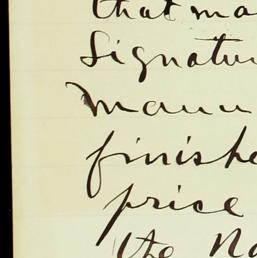 that ma
Signatur
manu
finishe
price
the Na